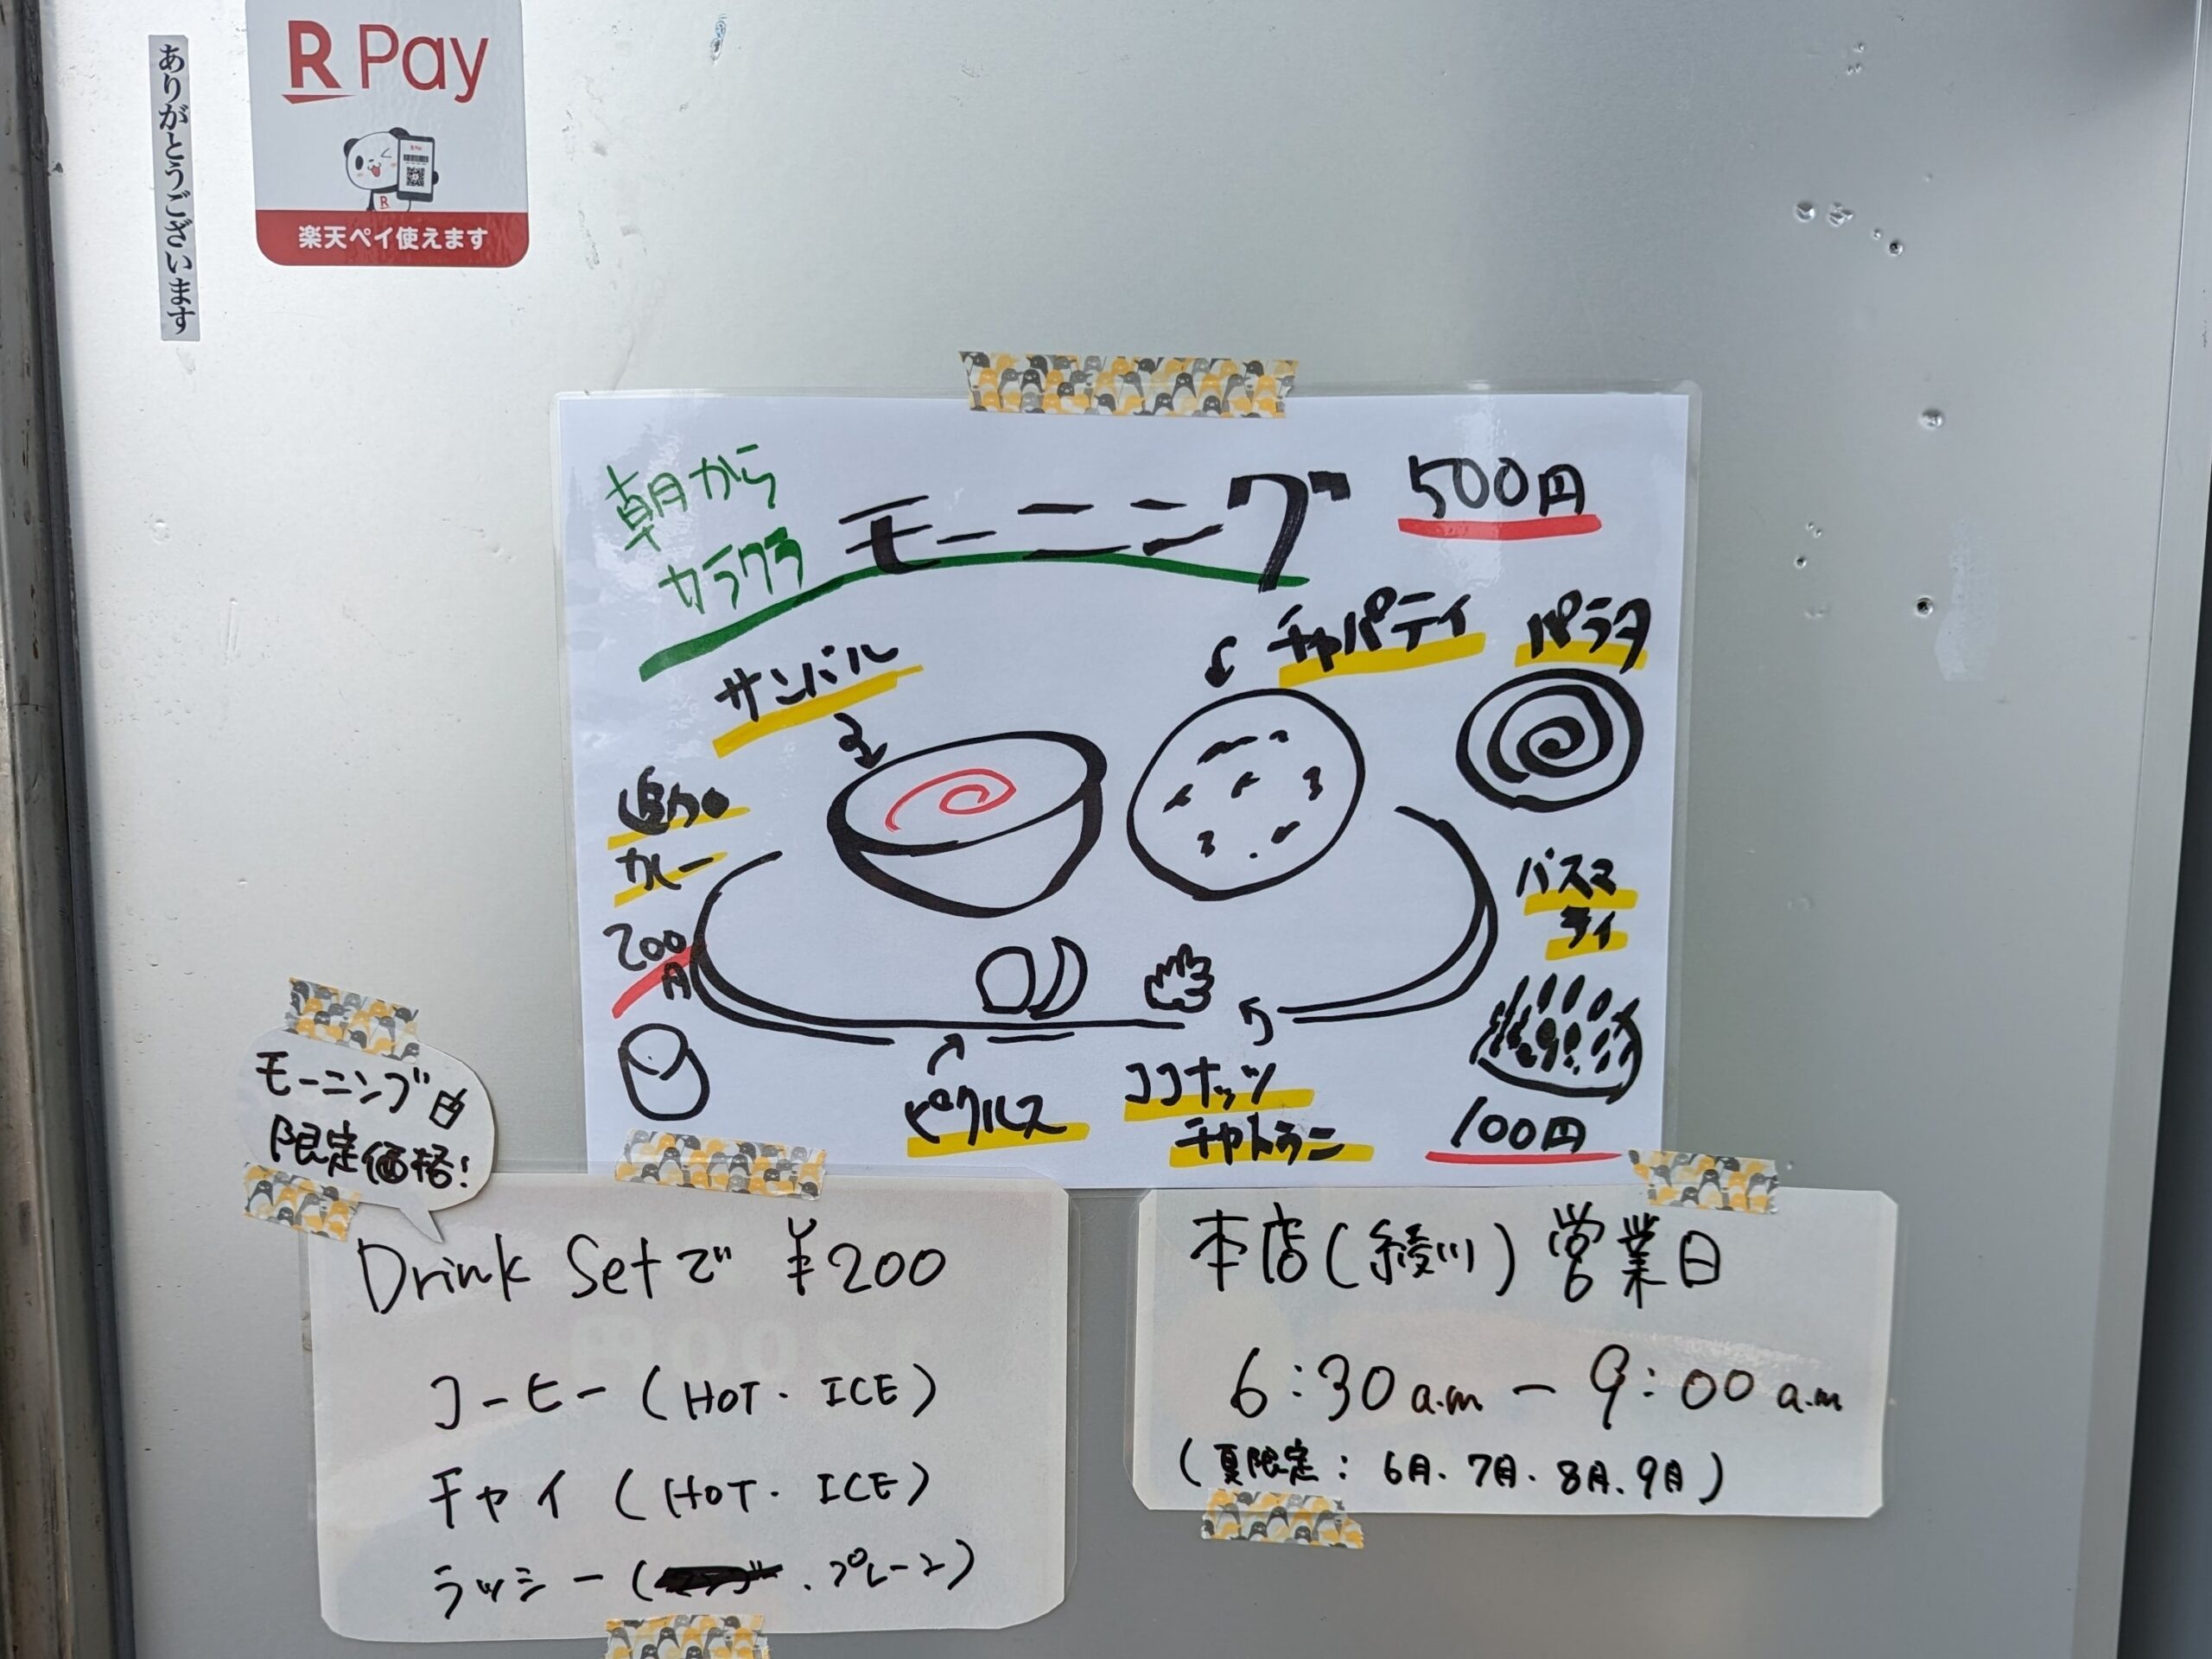 R Pay
楽天ペイ使えます
ありがとうございます
朝から
カラクラ
モーニング
500円
サンバル
チャパティ
パラタ
追加
カレー
200
円
バスマ
ティ
100円
ピクルス
ココナッツ
チャトニ
モーニング
限定価格!
Drink Setで ¥200
コーヒー(HOT・ICE)
チャイ(HOT・ICE)
ラッシー(・プレーン)
本店(綾川)営業日
6:30a.m - 9:00 a.m
(夏限定:6月、7月、8月、9月)